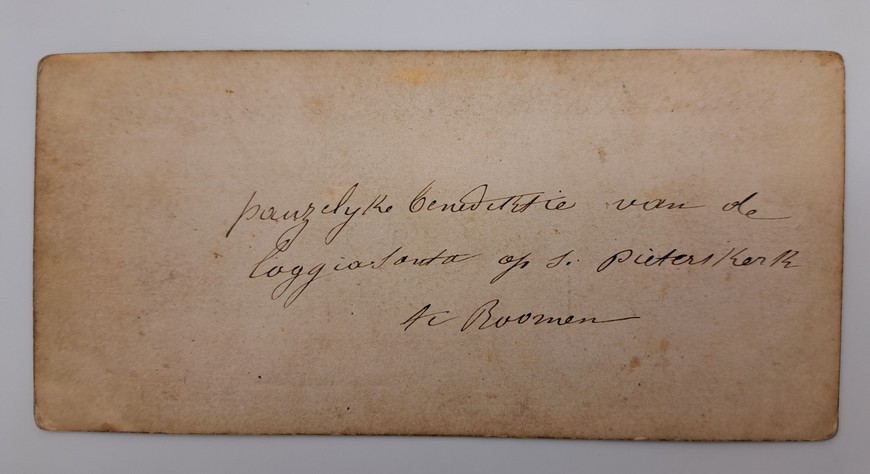 pauzelyke benediktie van de
loggia santa op S. Pieterskerk
te Roomen